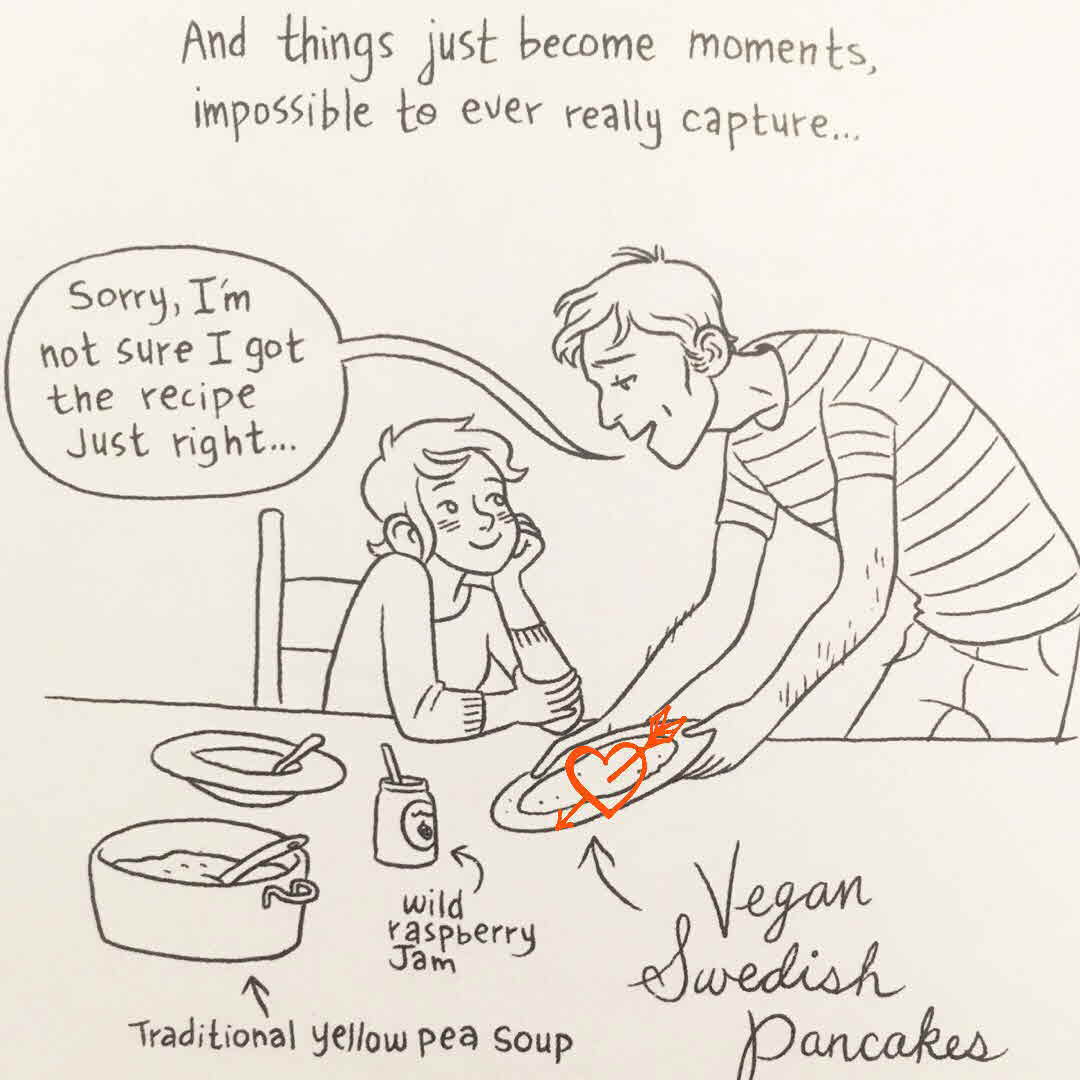 And things just become moments,
impossible to ever really capture...
Sorry, I'm
not sure I got
the recipe
Just right...
wild
raspberry
Jam
Vegan
Swedish
Pancakes
Traditional yellow pea soup